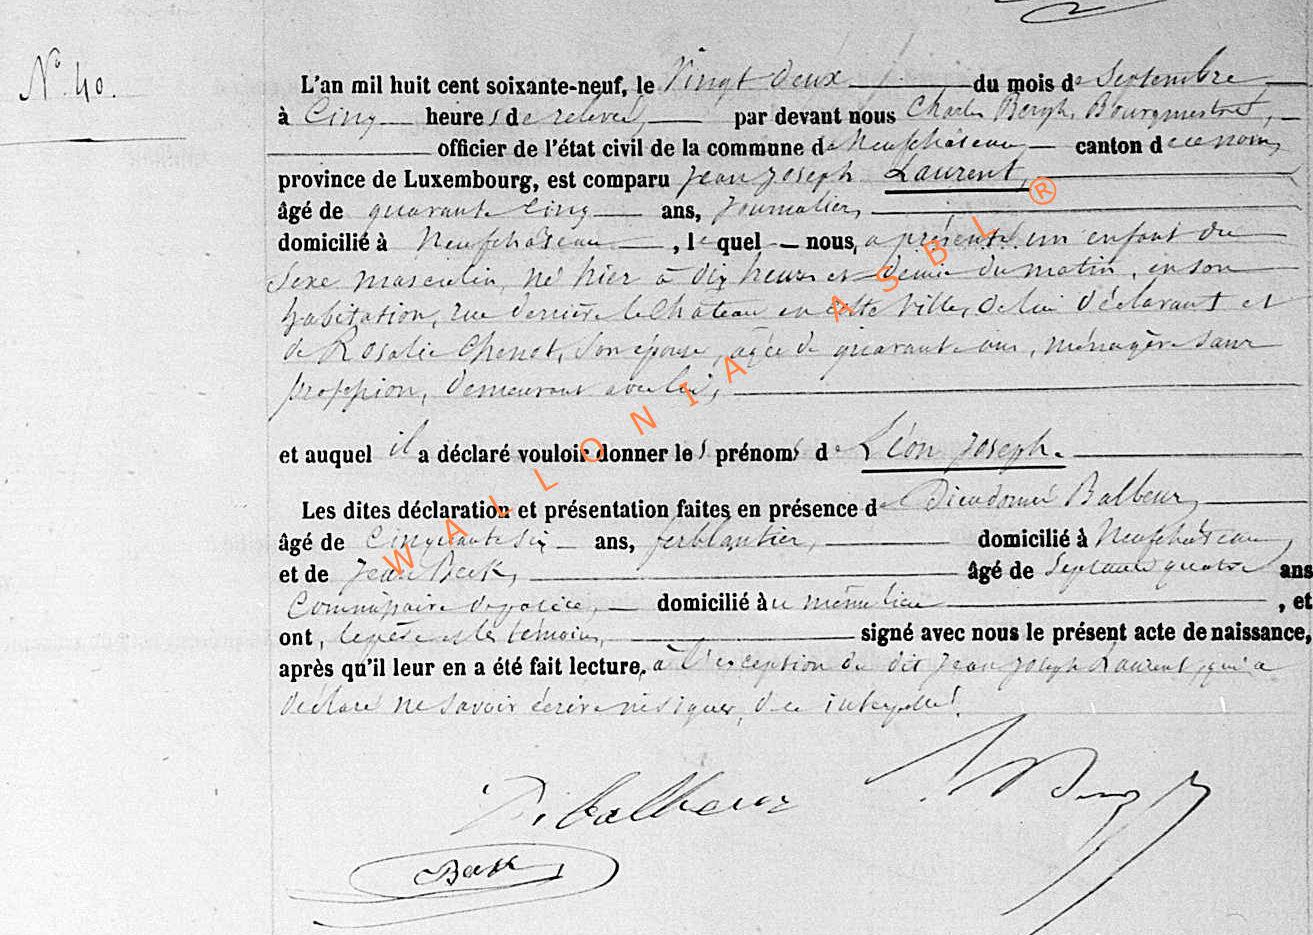 N° 40.
L'an mil huit cent soixante-neuf, le Vingt deux du mois de Septembre
à Cinq heures de relevée, par devant nous Charles Bergh, Bourgmestre,
officier de l'état civil de la commune de Neufchâteau canton de ce nom,
province de Luxembourg, est comparu Jean Joseph Laurent,
âgé de quarante cinq ans, journalier,
domicilié à Neufchâteau, lequel nous a présenté un enfant du
sexe masculin, né hier à dix heures et demie du matin, en son
habitation, rue derrière le Château en cette ville, de lui déclarant et
de Rosalie Chenot, son épouse, agée de quarante ans, ménagère sans
profession, demeurant avec lui,
et auquel il a déclaré vouloir donner les prénoms de Léon Joseph.
Les dites déclaration et présentation faites en présence de Dieudonné Balbeur,
âgé de Cinquante six ans, ferblantier, domicilié à Neufchâteau,
et de Jean Beck, âgé de Septante quatre ans
Commissaire de police, domicilié au même lieu, et
ont, le père et les témoins, signé avec nous le présent acte de naissance,
après qu'il leur en a été fait lecture, à l'exception du dit Jean Joseph Laurent, qui a
déclaré ne savoir écrire ni signer, de ce interpellé.
D. Balbeur
Beck
WALLONIA ASBL ®